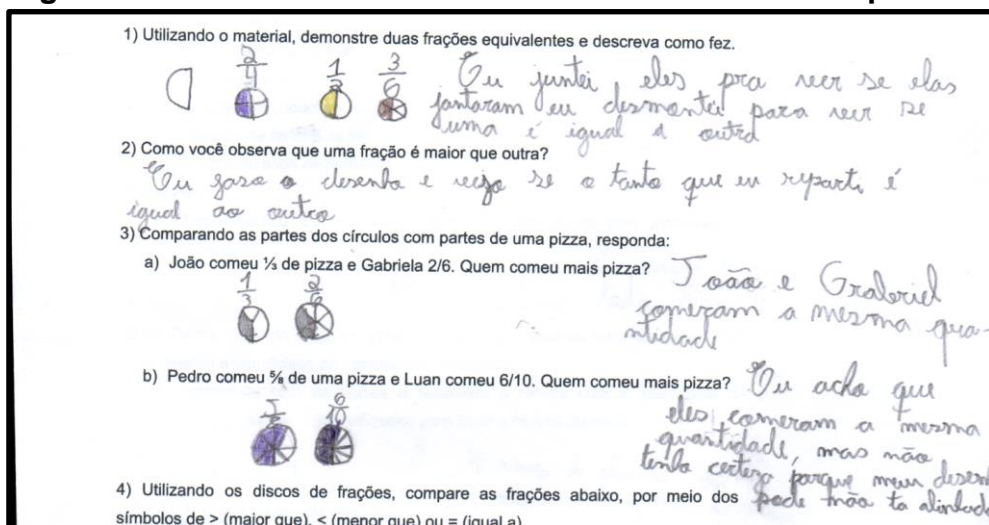 1) Utilizando o material, demonstre duas frações equivalentes e descreva como fez.
2/4 1/2 3/6 Eu juntei eles pra veer se elas
jantaram eu desmontei para veer se
uma é igual a outra
2) Como você observa que uma fração é maior que outra?
Eu faso o desenho e vejo se o tanto que eu reparti é
igual ao outro
3) Comparando as partes dos círculos com partes de uma pizza, responda:
a) João comeu ⅓ de pizza e Gabriela 2/6. Quem comeu mais pizza? João e Grabriel
1/3 2/6 comeram a mesma qua-
ntidade
b) Pedro comeu ⅝ de uma pizza e Luan comeu 6/10. Quem comeu mais pizza? Eu acho que
6/10 eles comeram a mesma
quantidade, mas não
tenho certeza porque meu desenh
4) Utilizando os discos de frações, compare as frações abaixo, por meio dos pode não ta alinhado
símbolos de > (maior que), < (menor que) ou = (igual a)